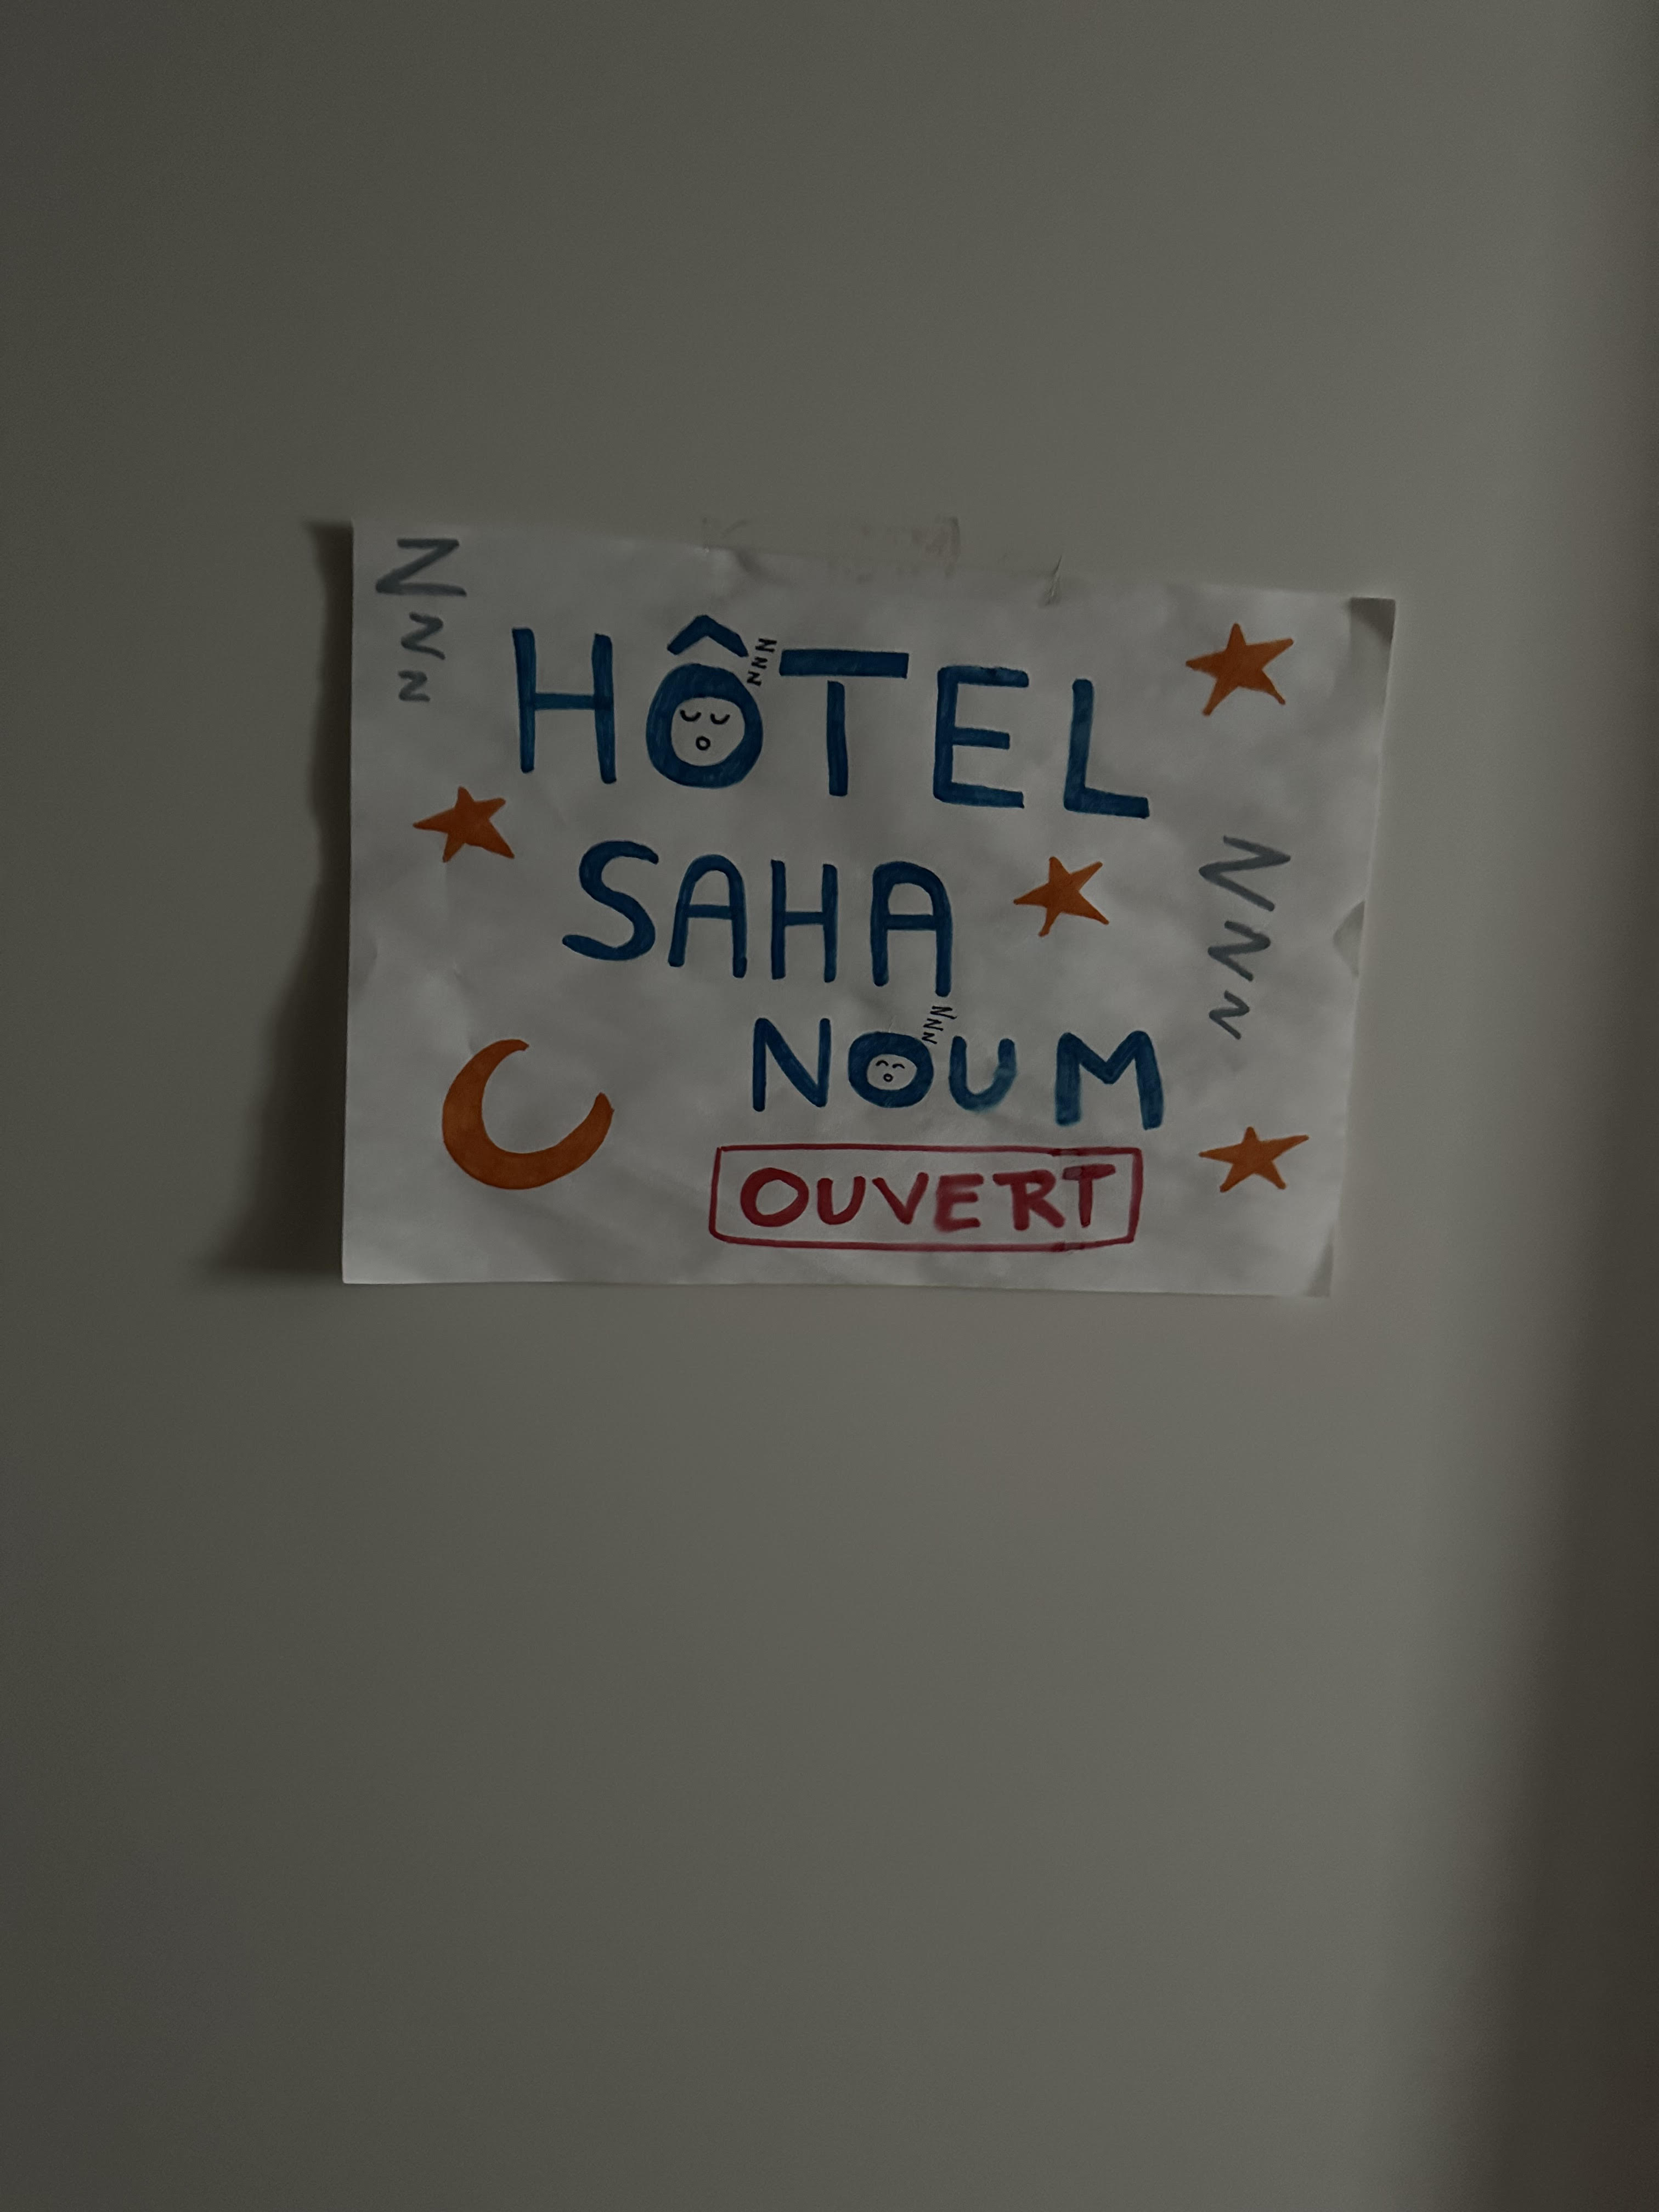 Z z z
HÔTEL
zzz
SAHA
Z z z
NOUM
zzz
OUVERT